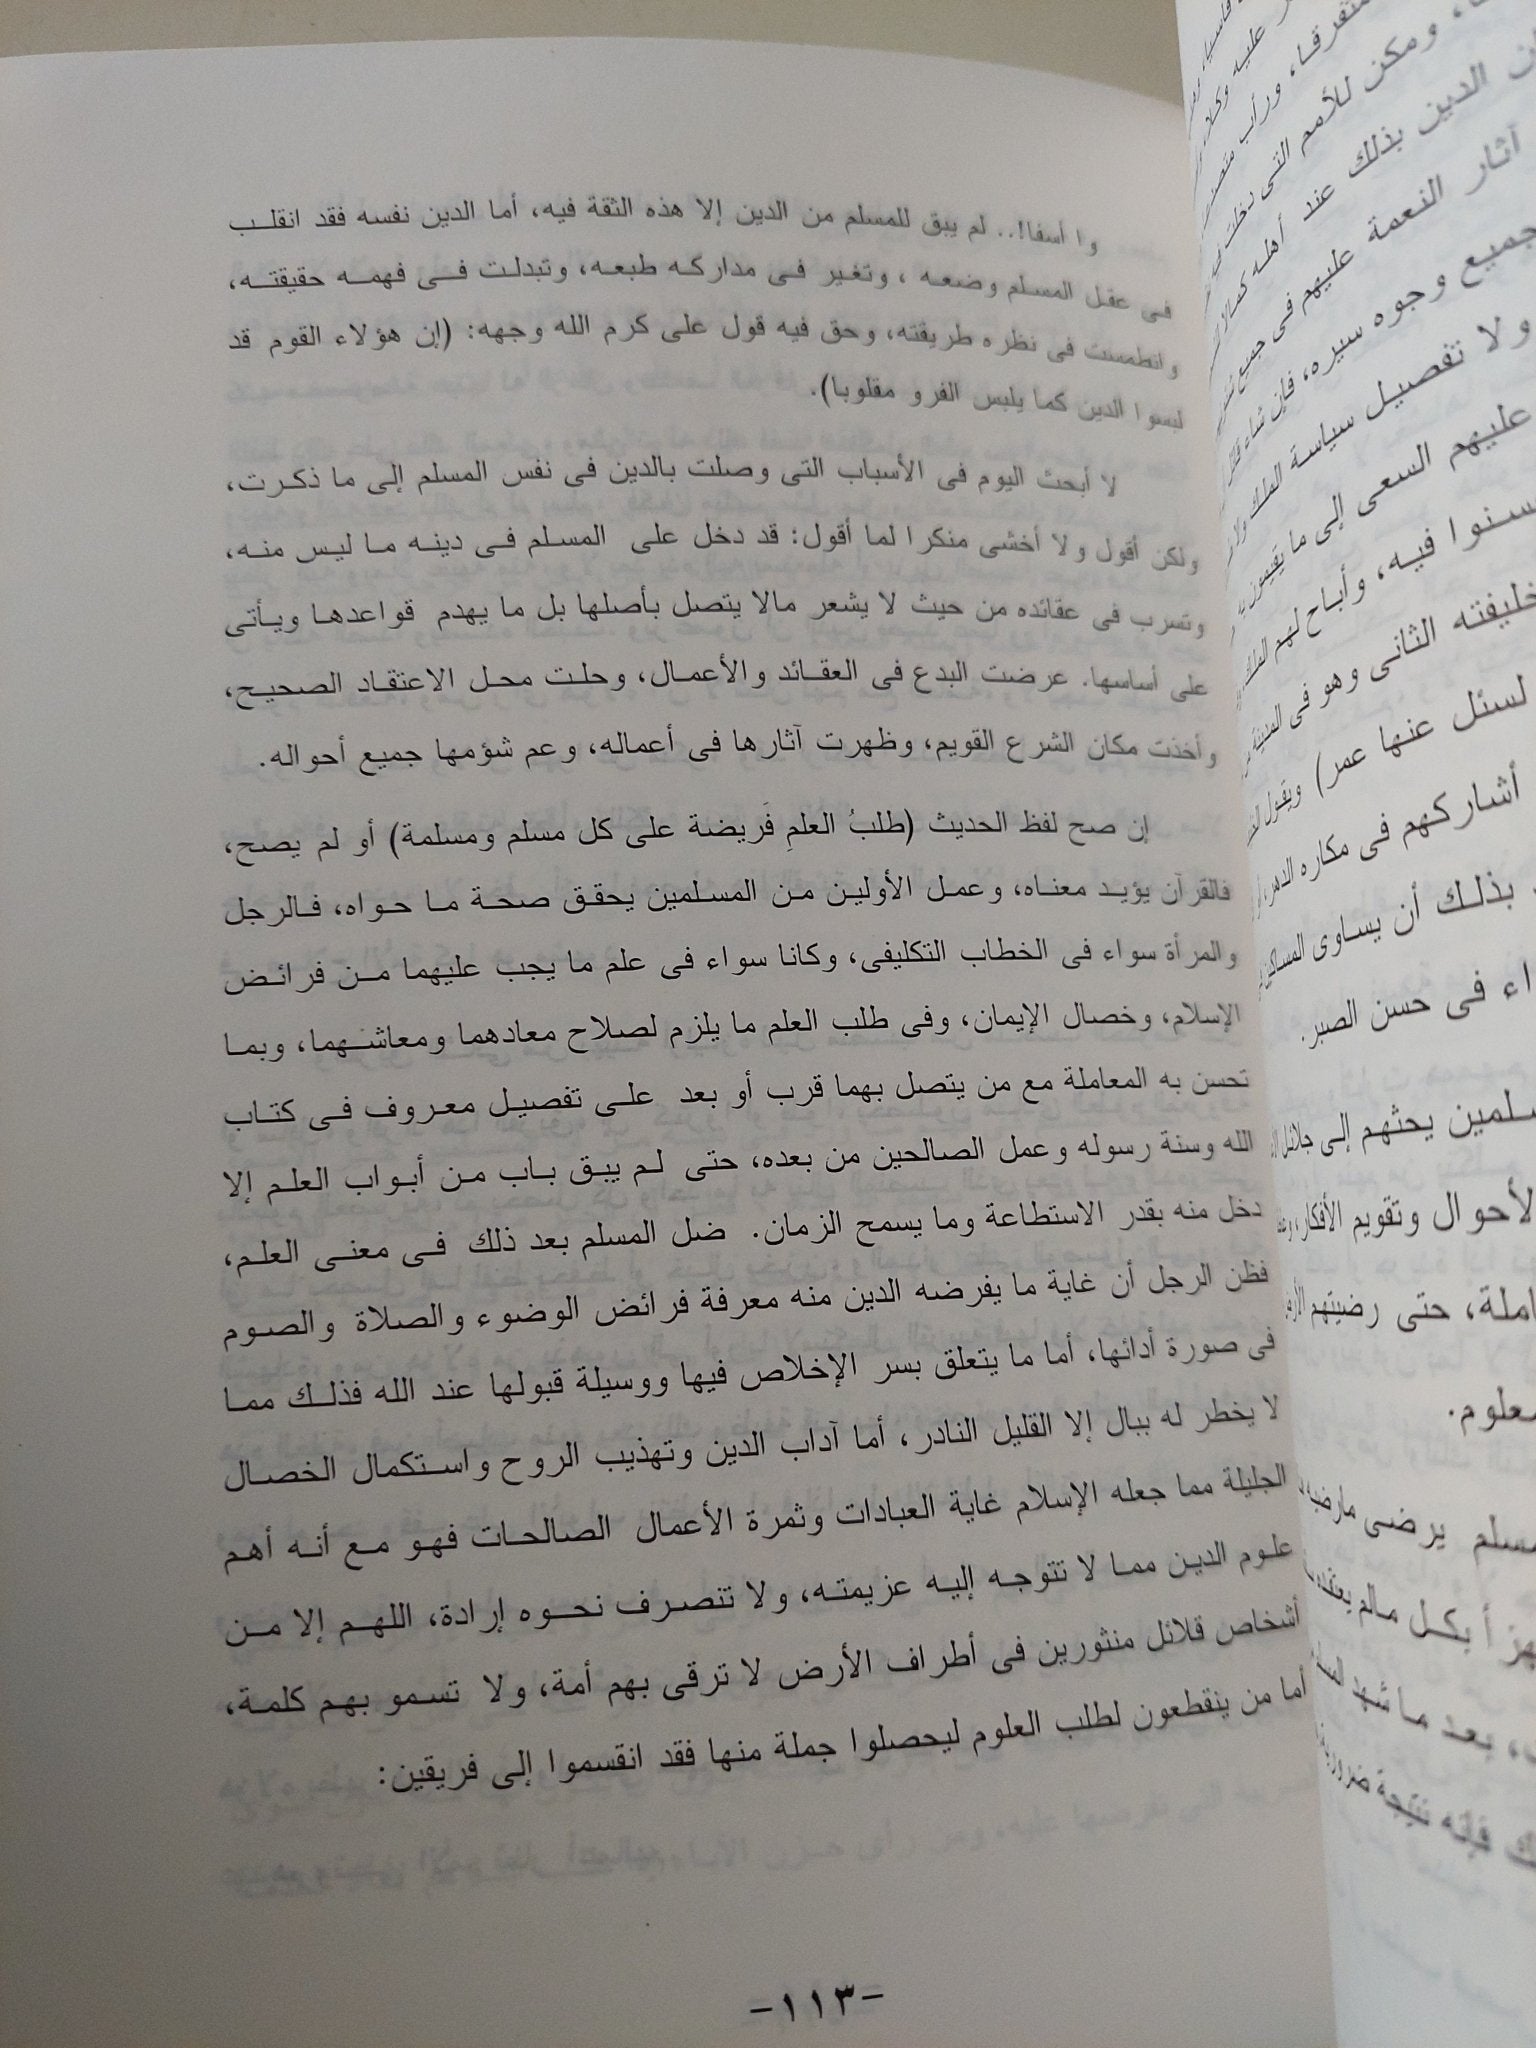 وا أسفا!.. لم يبق للمسلم من الدين إلا هذه الثقة فيه، أما الدين نفسه فقد انقلب
فى عقل المسلم وضعه ، وتغير فى مداركه طبعه، وتبدلت فى فهمه حقيقته،
وانطمست فى نظره طريقته، وحق فيه قول على كرم الله وجهه: (إن هؤلاء القوم قد
لبسوا الدين كما يلبس الفرو مقلوبا).
لا أبحث اليوم فى الأسباب التى وصلت بالدين فى نفس المسلم إلى ما ذكرت،
ولكن أقول ولا أخشى منكرا لما أقول: قد دخل على المسلم فى دينه ما ليس منه،
وتسرب فى عقائده من حيث لا يشعر مالا يتصل بأصلها بل ما يهدم قواعدها ويأتى
على أساسها. عرضت البدع فى العقائد والأعمال، وحلت محل الاعتقاد الصحيح،
وأخذت مكان الشرع القويم، وظهرت آثارها فى أعماله، وعم شؤمها جميع أحواله.
إن صح لفظ الحديث (طلبُ العلمِ فَريضة على كل مسلم ومسلمة) أو لم يصح،
فالقرآن يؤيد معناه، وعمل الأولين من المسلمين يحقق صحة ما حواه، فالرجل
والمرأة سواء فى الخطاب التكليفى، وكانا سواء فى علم ما يجب عليهما من فرائض
الإسلام، وخصال الإيمان، وفى طلب العلم ما يلزم لصلاح معادهما ومعاشهما، وبما
تحسن به المعاملة مع من يتصل بهما قرب أو بعد على تفصيل معروف فى كتاب
الله وسنة رسوله وعمل الصالحين من بعده، حتى لم يبق باب من أبواب العلم إلا
دخل منه بقدر الاستطاعة وما يسمح الزمان. ضل المسلم بعد ذلك فى معنى العلم،
فظن الرجل أن غاية ما يفرضه الدين منه معرفة فرائض الوضوء والصلاة والصوم
فى صورة أدائها، أما ما يتعلق بسر الإخلاص فيها ووسيلة قبولها عند الله فذلك مما
لا يخطر له ببال إلا القليل النادر، أما آداب الدين وتهذيب الروح واستكمال الخصال
الجليلة مما جعله الإسلام غاية العبادات وثمرة الأعمال الصالحات فهو مع أنه أهم
علوم الدين مما لا تتوجه إليه عزيمته، ولا تنصرف نحوه إرادة، اللهم إلا من
أشخاص قلائل منثورين فى أطراف الأرض لا ترقى بهم أمة، ولا تسمو بهم كلمة،
أما من ينقطعون لطلب العلوم ليحصلوا جملة منها فقد انقسموا إلى فريقين:
-١١٣-
ومكن للأمم التى دخلت
الدين بذلك عند أهله كمالا
آثار النعمة عليهم فى جميع
جميع وجوه سيره، فإن شاء قائل
ولا تفصيل سياسة الملك
عليهم السعى إلى ما يقيمون
فيه، وأباح لهم الملك
الثانى وهو فى المدينة
لسئل عنها عمر) ويقول
أشاركهم فى مكاره الدهر،
بذلك أن يساوى المساكين
فى حسن الصبر.
يحثهم إلى جلائل
وتقويم الأفكار،
حتى رضيتهم
يرضى
مالم
بعد ما شهد
فإنه نتيجة